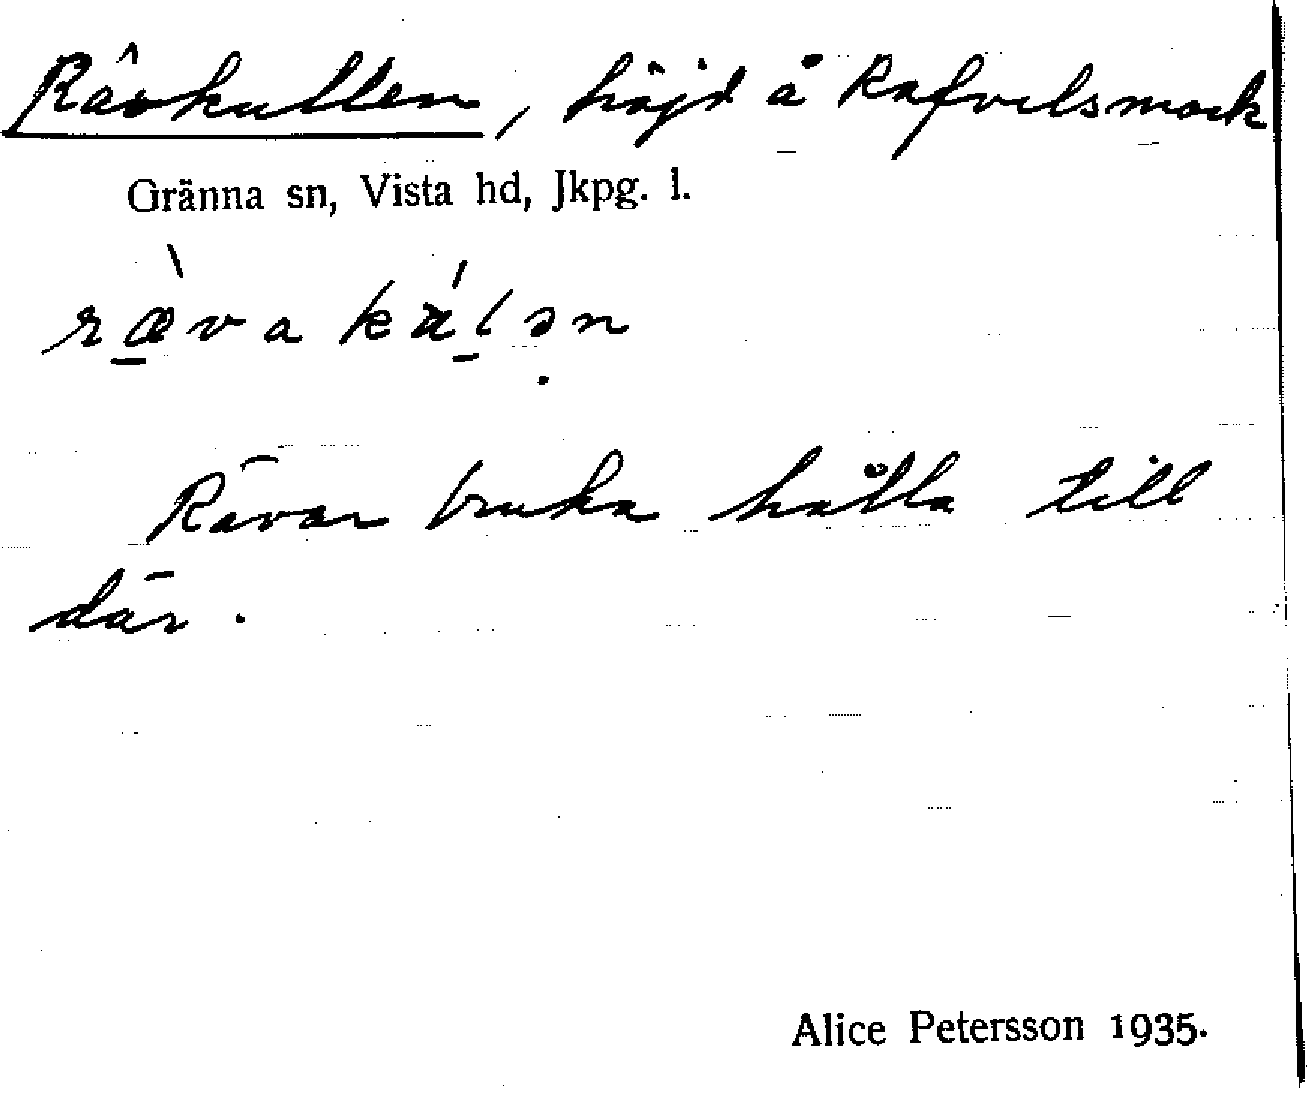 Râvkullen, höjd å Rafvelsmark
Gränna sn, Vista hd, Jkpg. l.
ræ̀va kä́lən
Rävar bruka hålla till
där.
Alice Petersson 1935.